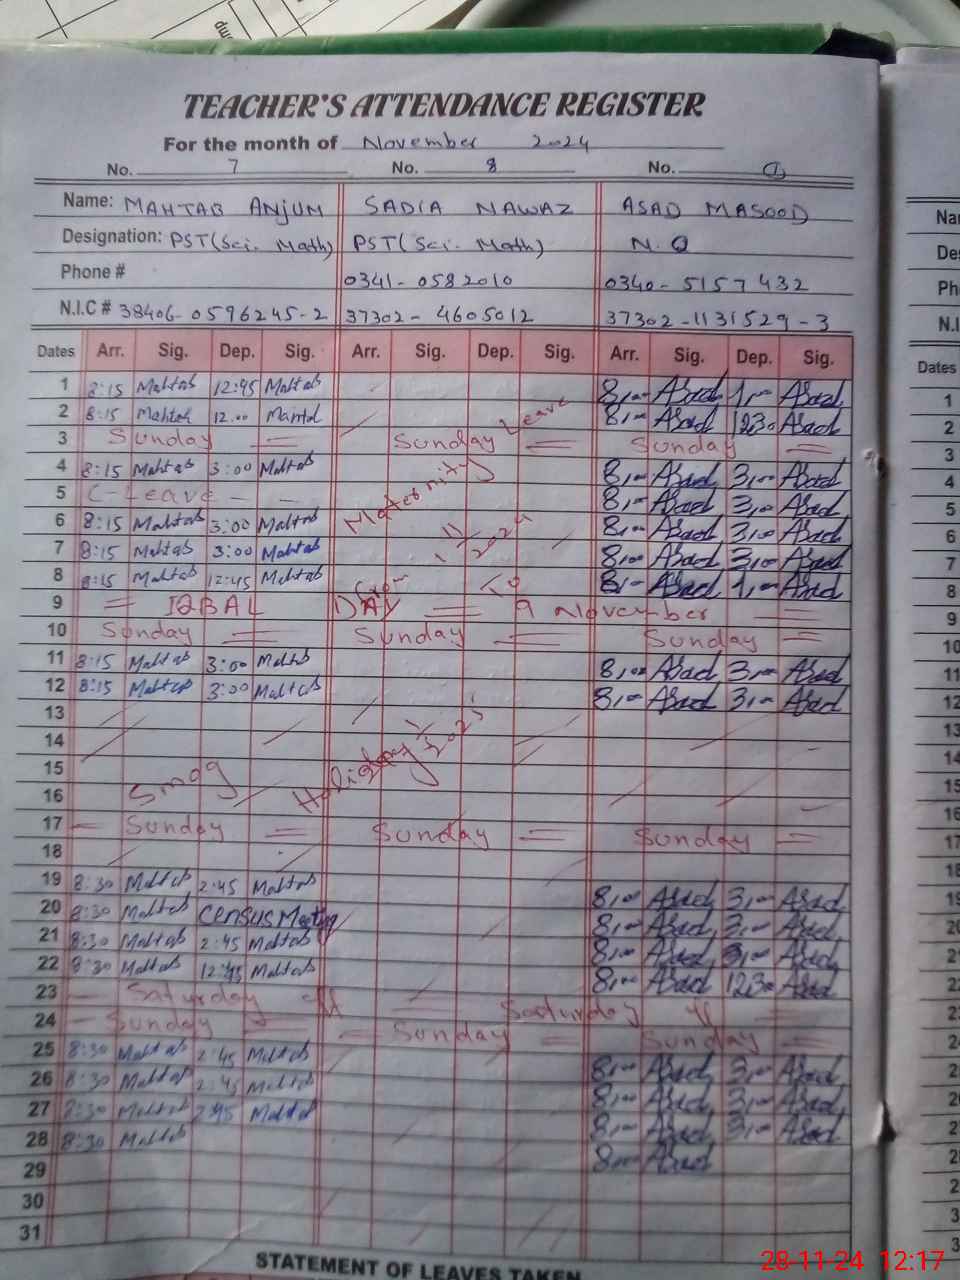 TEACHER'S ATTENDANCE REGISTER
For the month of November 2024
No. 7 No. 8 No. 1
Name: MAHTAB ANJUM SADIA NAWAZ ASAD MASOOD
Designation: PST(Sci. Math) PST(Sci. Math) N.Q
Phone # 0341-0582010 0340-5157432
N.I.C # 38406-0596245-2 37302-4605012 37302-1131529-3
Dates Arr. Sig. Dep. Sig. Arr. Sig. Dep. Sig. Arr. Sig. Dep. Sig.
1 8:15 Mahtab 12:45 Mahtab 8,00 Asad 1,00 Asad
2 8:15 Mahtab 12.00 Mahtab Leave 8,00 Asad 1230 Asad
3 Sunday = Sunday = Sunday =
4 8:15 Mahtab 3:00 Mahtab Maternity 8,00 Asad 3,00 Asad
5 C-Leave - - 8,00 Asad 3,00 Asad
6 8:15 Mahtab 3:00 Mahtab 8,00 Asad 3,00 Asad
7 8:15 Mahtab 3:00 Mahtab 1/11/2024 8,00 Asad 3,00 Asad
8 8:15 Mahtab 12:45 Mahtab From To 8,00 Asad 1,00 Asad
9 = IQBAL DAY = 9 November =
10 Sunday = Sunday = Sunday =
11 8:15 Mahtab 3:00 Mahtab 8,00 Asad 3,00 Asad
12 8:15 Mahtab 3:00 Mahtab 8,00 Asad 3,00 Asad
13
14
15
16 Smog Holiday
17 - Sunday = Sunday = Sunday =
18
19 8:30 Mahtab 2:45 Mahtab 8,00 Asad 3,00 Asad
20 8:30 Mahtab Census Meeting 8,00 Asad 3,00 Asad
21 8:30 Mahtab 2:45 Mahtab 8,00 Asad 3,00 Asad
22 8:30 Mahtab 12:45 Mahtab 8,00 Asad 1230 Asad
23 - Saturday off = Saturday off =
24 - Sunday = - Sunday = Sunday =
25 8:30 Mahtab 2:45 Mahtab 8,00 Asad 3,00 Asad
26 8:30 Mahtab 2:45 Mahtab 8,00 Asad 3,00 Asad
27 8:30 Mahtab 2:45 Mahtab 8,00 Asad 3,00 Asad
28 8:30 Mahtab 8,00 Asad
29
30
31
STATEMENT OF LEAVES TAKEN
28-11-24 12:17